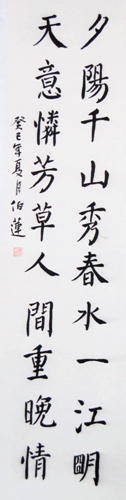 夕陽千山秀春水一江明
天意憐芳草人間重晚情
癸巳年夏月伯蓮